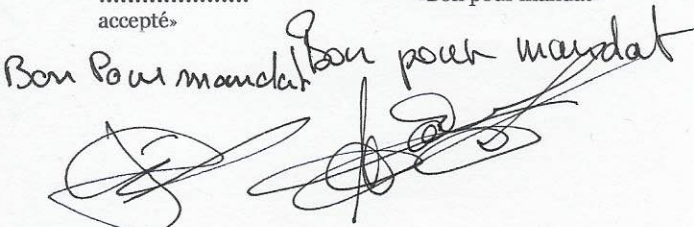 .....................
accepté»
Bon Pour mandat
Bon pour mandat